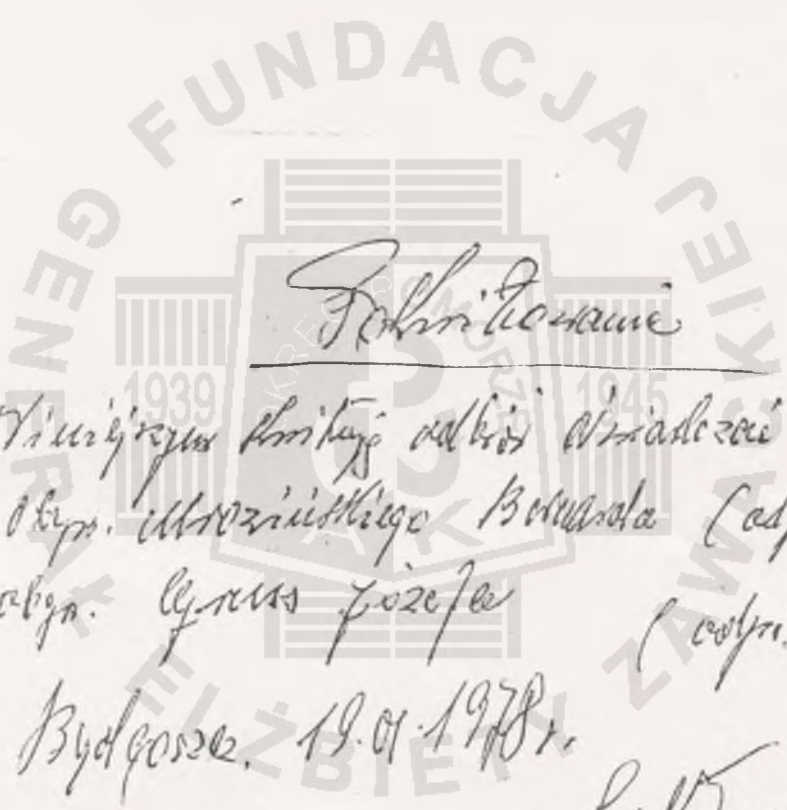 FUNDACJA GENERAŁ ELŻBIETY ZAWACKIEJ
1939 1945
AK
Pokwitowanie
Niniejszym kwituję odbiór oświadczeń
obyw. Mrozińskiego Bernarda (odp
obyw. Gruss Józefa (odpis
Bydgoszcz, 19.01.1978 r.